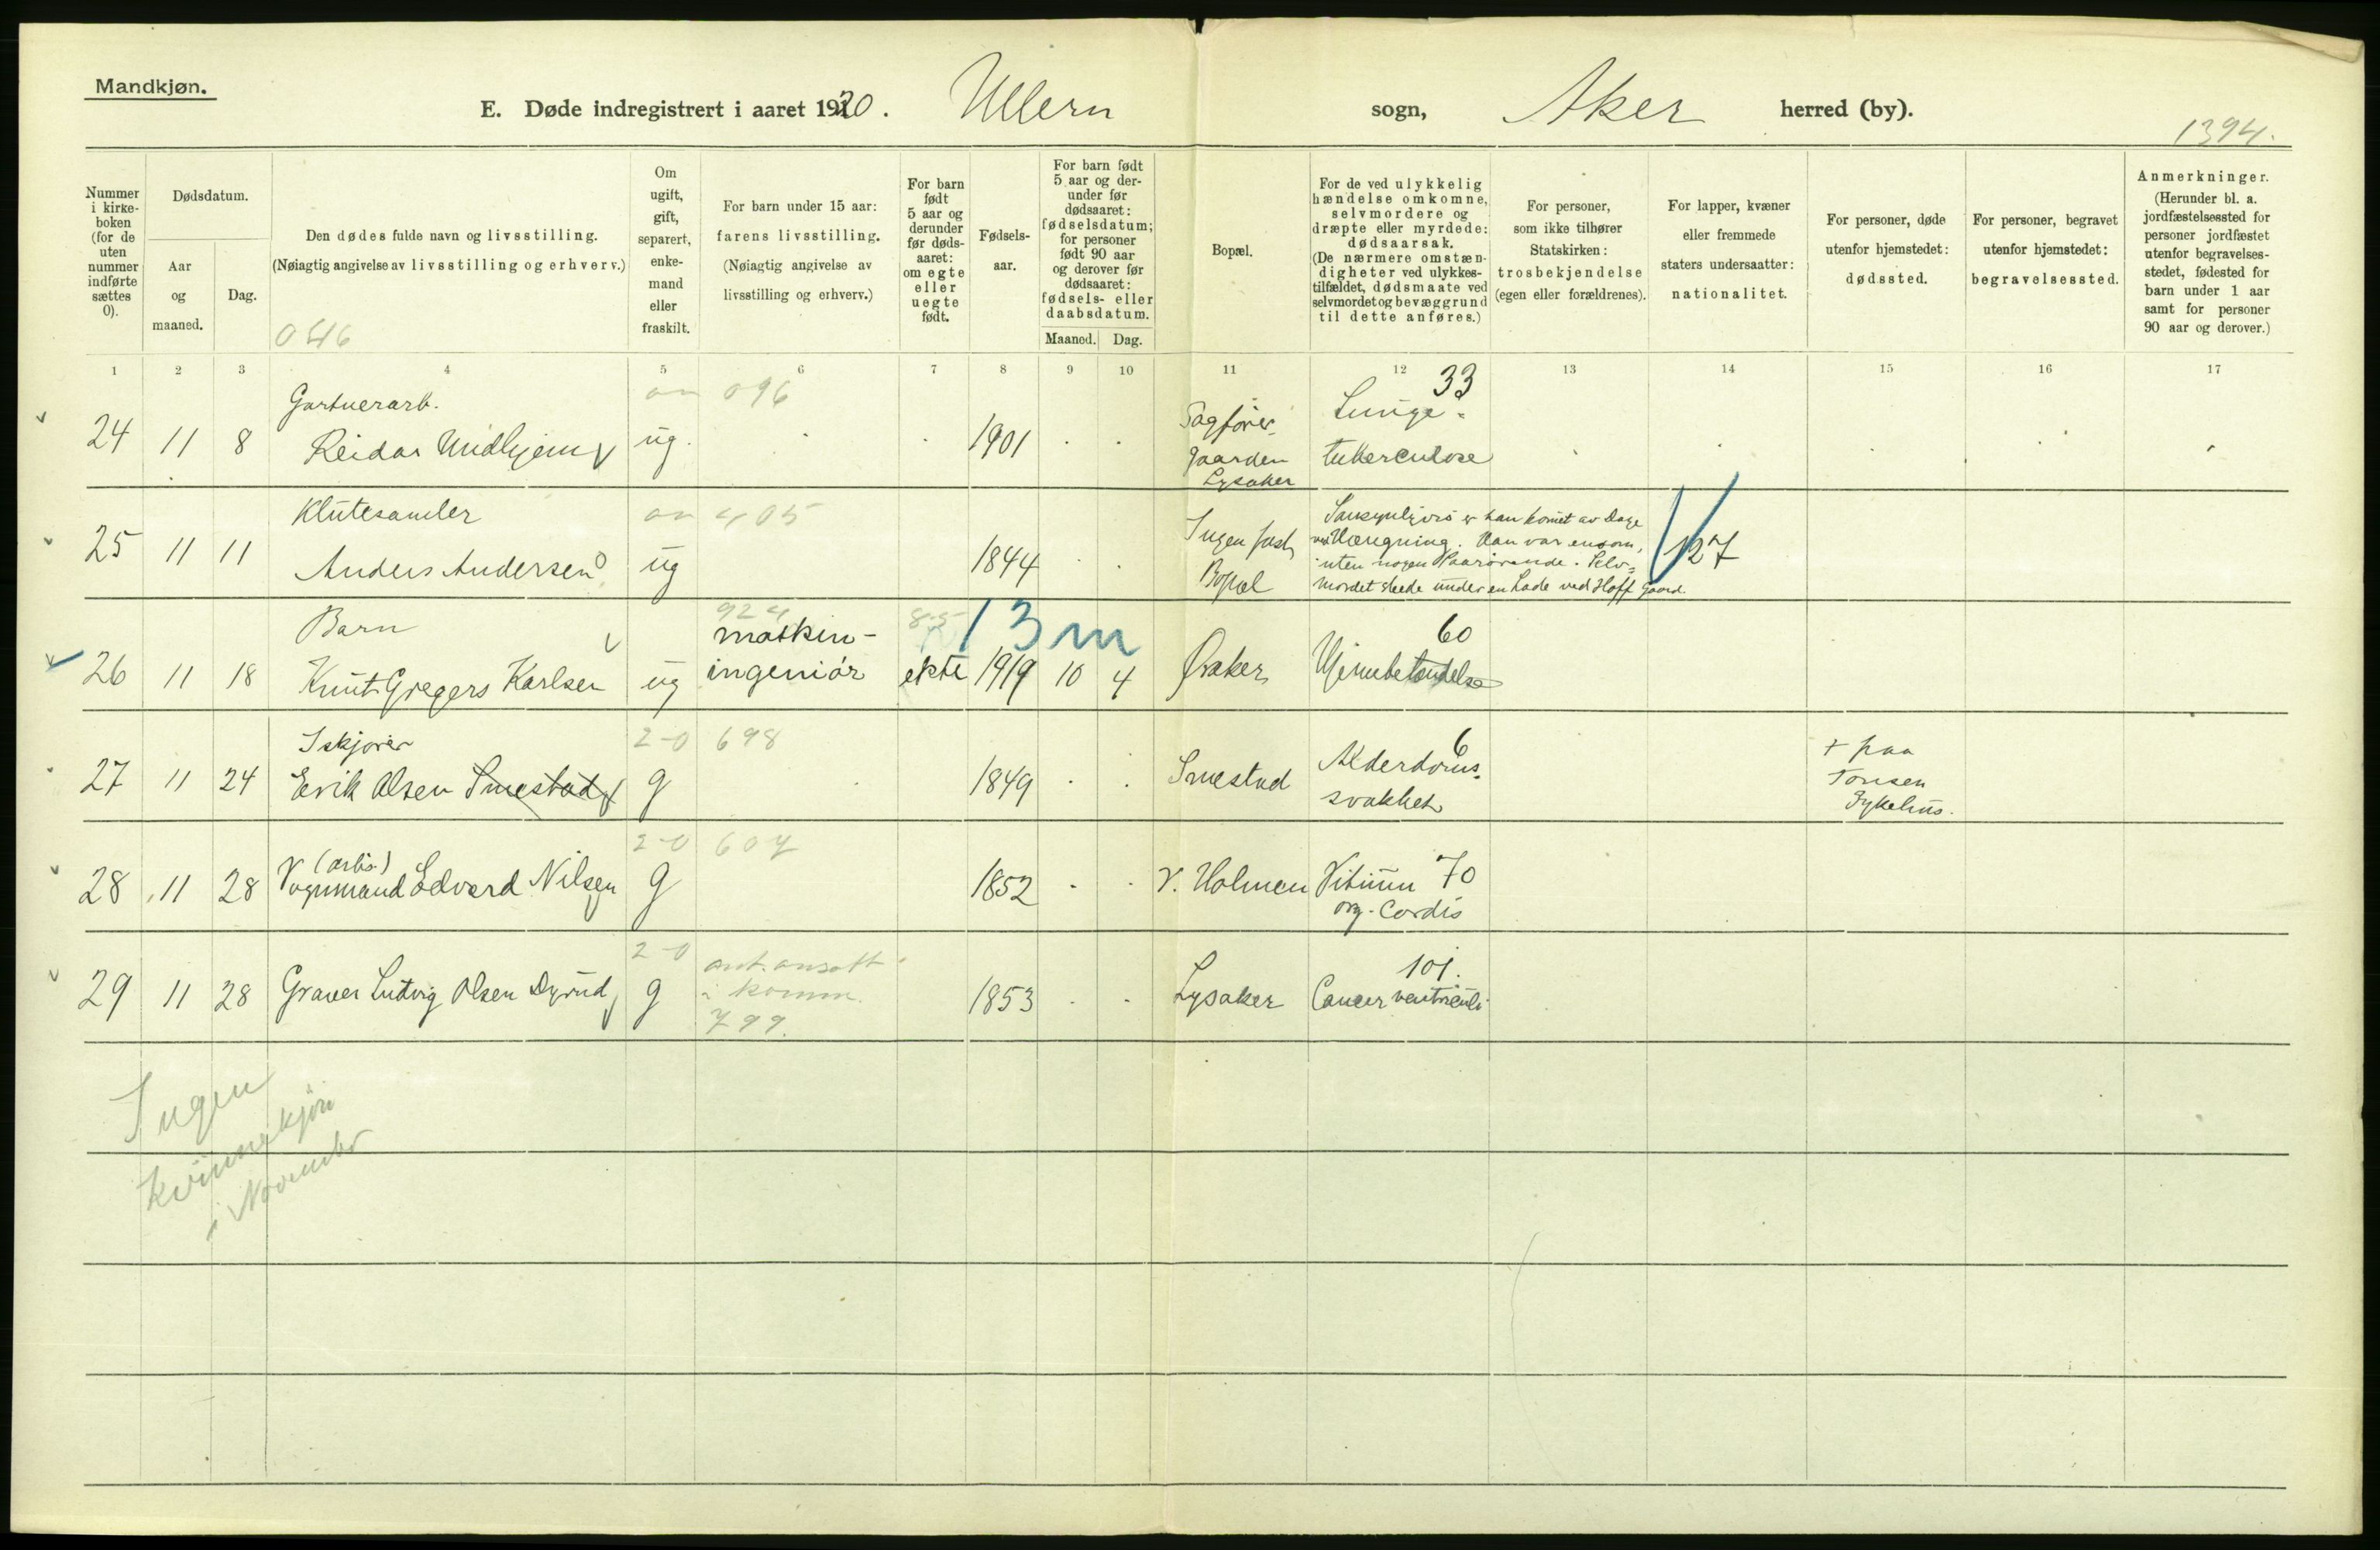 Mandkjøn.
E. Døde indregistrert i aaret 1920. Ullern sogn, Aker herred (by).
1394.
Nummer i kirkeboken (for de uten nummer indførte sættes 0).
Dødsdatum.
Aar og maaned.
Dag.
Den dødes fulde navn og livsstilling.
(Nøiagtig angivelse av livsstilling og erhverv.)
046
Om ugift, gift, separert, enkemand eller fraskilt.
For barn under 15 aar: farens livsstilling. (Nøiagtig angivelse av livsstilling og erhverv.)
For barn født 5 aar og derunder før dødsaaret: om egte eller uegte født.
Fødselsaar.
For barn født 5 aar og derunder før dødsaaret: fødselsdatum; for personer født 90 aar og derover før dødsaaret: fødsels- eller daabsdatum.
Maaned. Dag.
Bopæl.
For de ved ulykkelig hændelse omkomne, selvmordere og dræpte eller myrdede: dødsaarsak. (De nærmere omstændigheter ved ulykkestilfældet, dødsmaate ved selvmordet og bevæggrund til dette anføres.)
For personer, som ikke tilhører Statskirken: trosbekjendelse (egen eller forældrenes).
For lapper, kvæner eller fremmede staters undersaatter: nationalitet.
For personer, døde utenfor hjemstedet: dødssted.
For personer, begravet utenfor hjemstedet: begravelsessted.
Anmerkninger. (Herunder bl. a. jordfæstelsessted for personer jordfæstet utenfor begravelsesstedet, fødested for barn under 1 aar samt for personer 90 aar og derover.)
1 2 3 4 5 6 7 8 9 10 11 12 13 14 15 16 17
Gartnerarb. 096 33
24 11 8 Reidar Midhjem ug. 1901 Sagfører-
gaarden
Lysaker
Lunge-
tuberculose
Klutesamler 405
25 11 11 Anders Andersen ug 1844 Ingen fast
Bopæl
Sansynligvis er han komet av Dage
ved Hængning. Han var ensom,
uten nogen Paarørende. Selv-
mordet skede under en Lade ved Hoff Gaard.
127
Barn 924 85 13 m 60
maskin-
26 11 18 Knut Gregers Karlsen ug ingeniør ekte 1919 10 4 Øraker Hjernebetændelse
Iskjører 2-0 698 6
27 11 24 Erik Olsen Smestad g 1849 Smestad Alderdoms-
svakhet
+ paa
Tonsen
Sykehus.
(arb.) 2-0 607
28 11 28 Vognmand Edvard Nilsen g 1852 V. Holmen Vitium 70
org. Cordis
2-0 ant. ansatt
i komm.
799.
101.
29 11 28 Graver Ludvig Olsen Dyrud g 1853 Lysaker Cancer ventriculi
Ingen
kvinnekjøn
i November